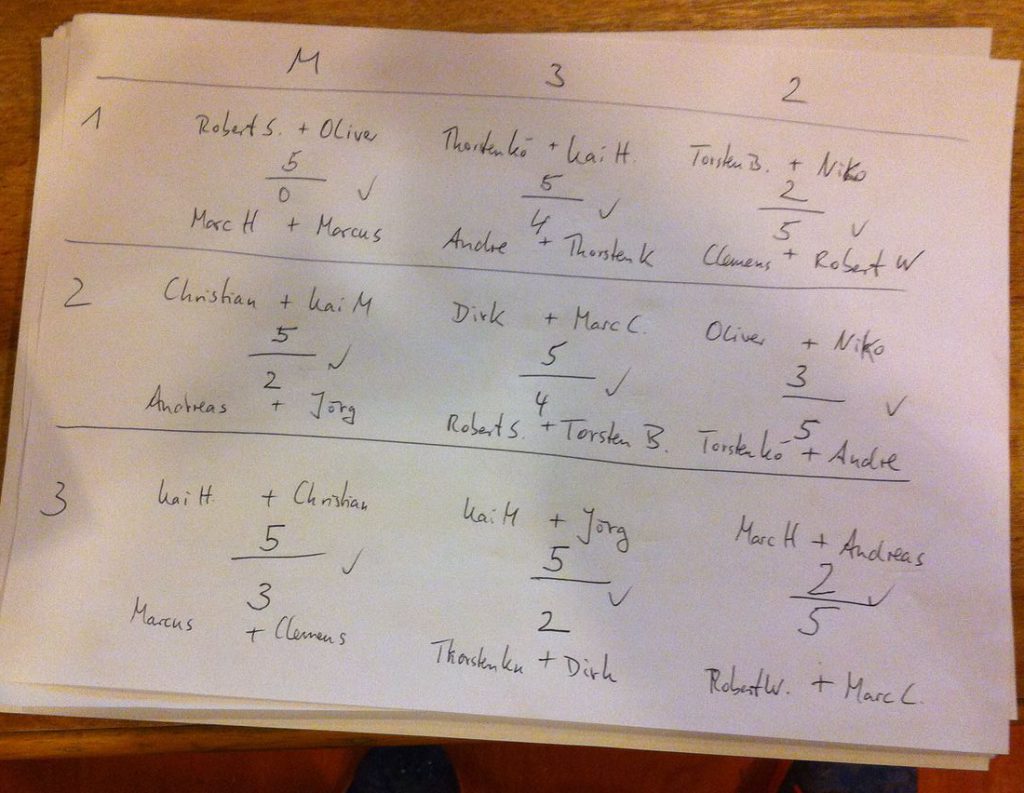 M 3 2
1 Robert S. + Oliver Thorsten Kö + Kai H. Torsten B. + Niko
5 5 2
0 ✓ 4 ✓ 5 ✓
Marc H + Marcus Andre + Thorsten K Clemens + Robert W
2 Christian + Kai M Dirk + Marc C. Oliver + Niko
5 5 3
2 ✓ 4 ✓ 5 ✓
Andreas + Jörg Robert S. + Torsten B. Torsten Kö + Andre
3 Kai H. + Christian Kai M + Jörg Marc H + Andreas
5 5 2
3 ✓ 2 ✓ 5 ✓
Marcus + Clemens Thorsten Ku + Dirk Robert W. + Marc C.